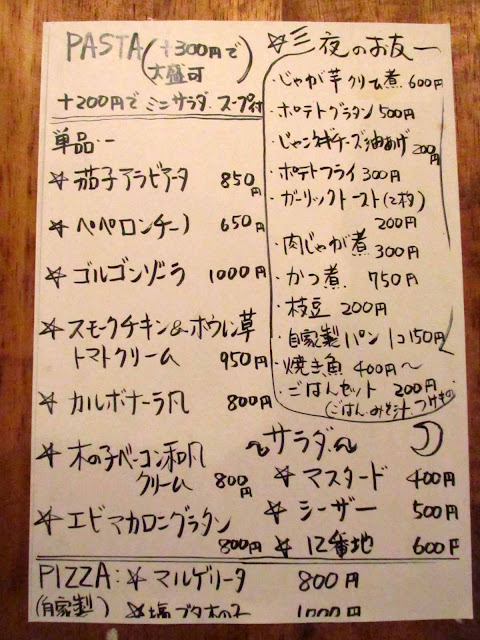 PASTA (+300円で
大盛可)
+200円で ミニサラダ、スープ付
単品…
☆ 茄子アラビアータ 850円
☆ ペペロンチーノ 650円
☆ ゴルゴンゾーラ 1000円
☆ スモークチキン&ホウレン草
トマトクリーム 950円
☆ カルボナーラ風 800円
☆ 木の子ベーコン和風
クリーム 800円
☆ エビマカロニグラタン
800円
☆ 三夜のお友
・じゃが芋クリーム煮 600円
・ポテトグラタン 500円
・じゃこネギチーズ油あげ 200円
・ポテトフライ 300円
・ガーリックトースト(2枚)
200円
・肉じゃが煮 300円
・かつ煮 750円
・枝豆 200円
・自家製パン 1コ150円
・焼き魚 400円〜
・ごはんセット 200円
(ごはん、みそ汁、つけもの)
〜サラダ〜
☆ マスタード 400円
☆ シーザー 500円
☆ 12番地 600円
PIZZA: ☆ マルゲリータ 800円
(自家製) ☆ 塩ブタ木の子 1000円